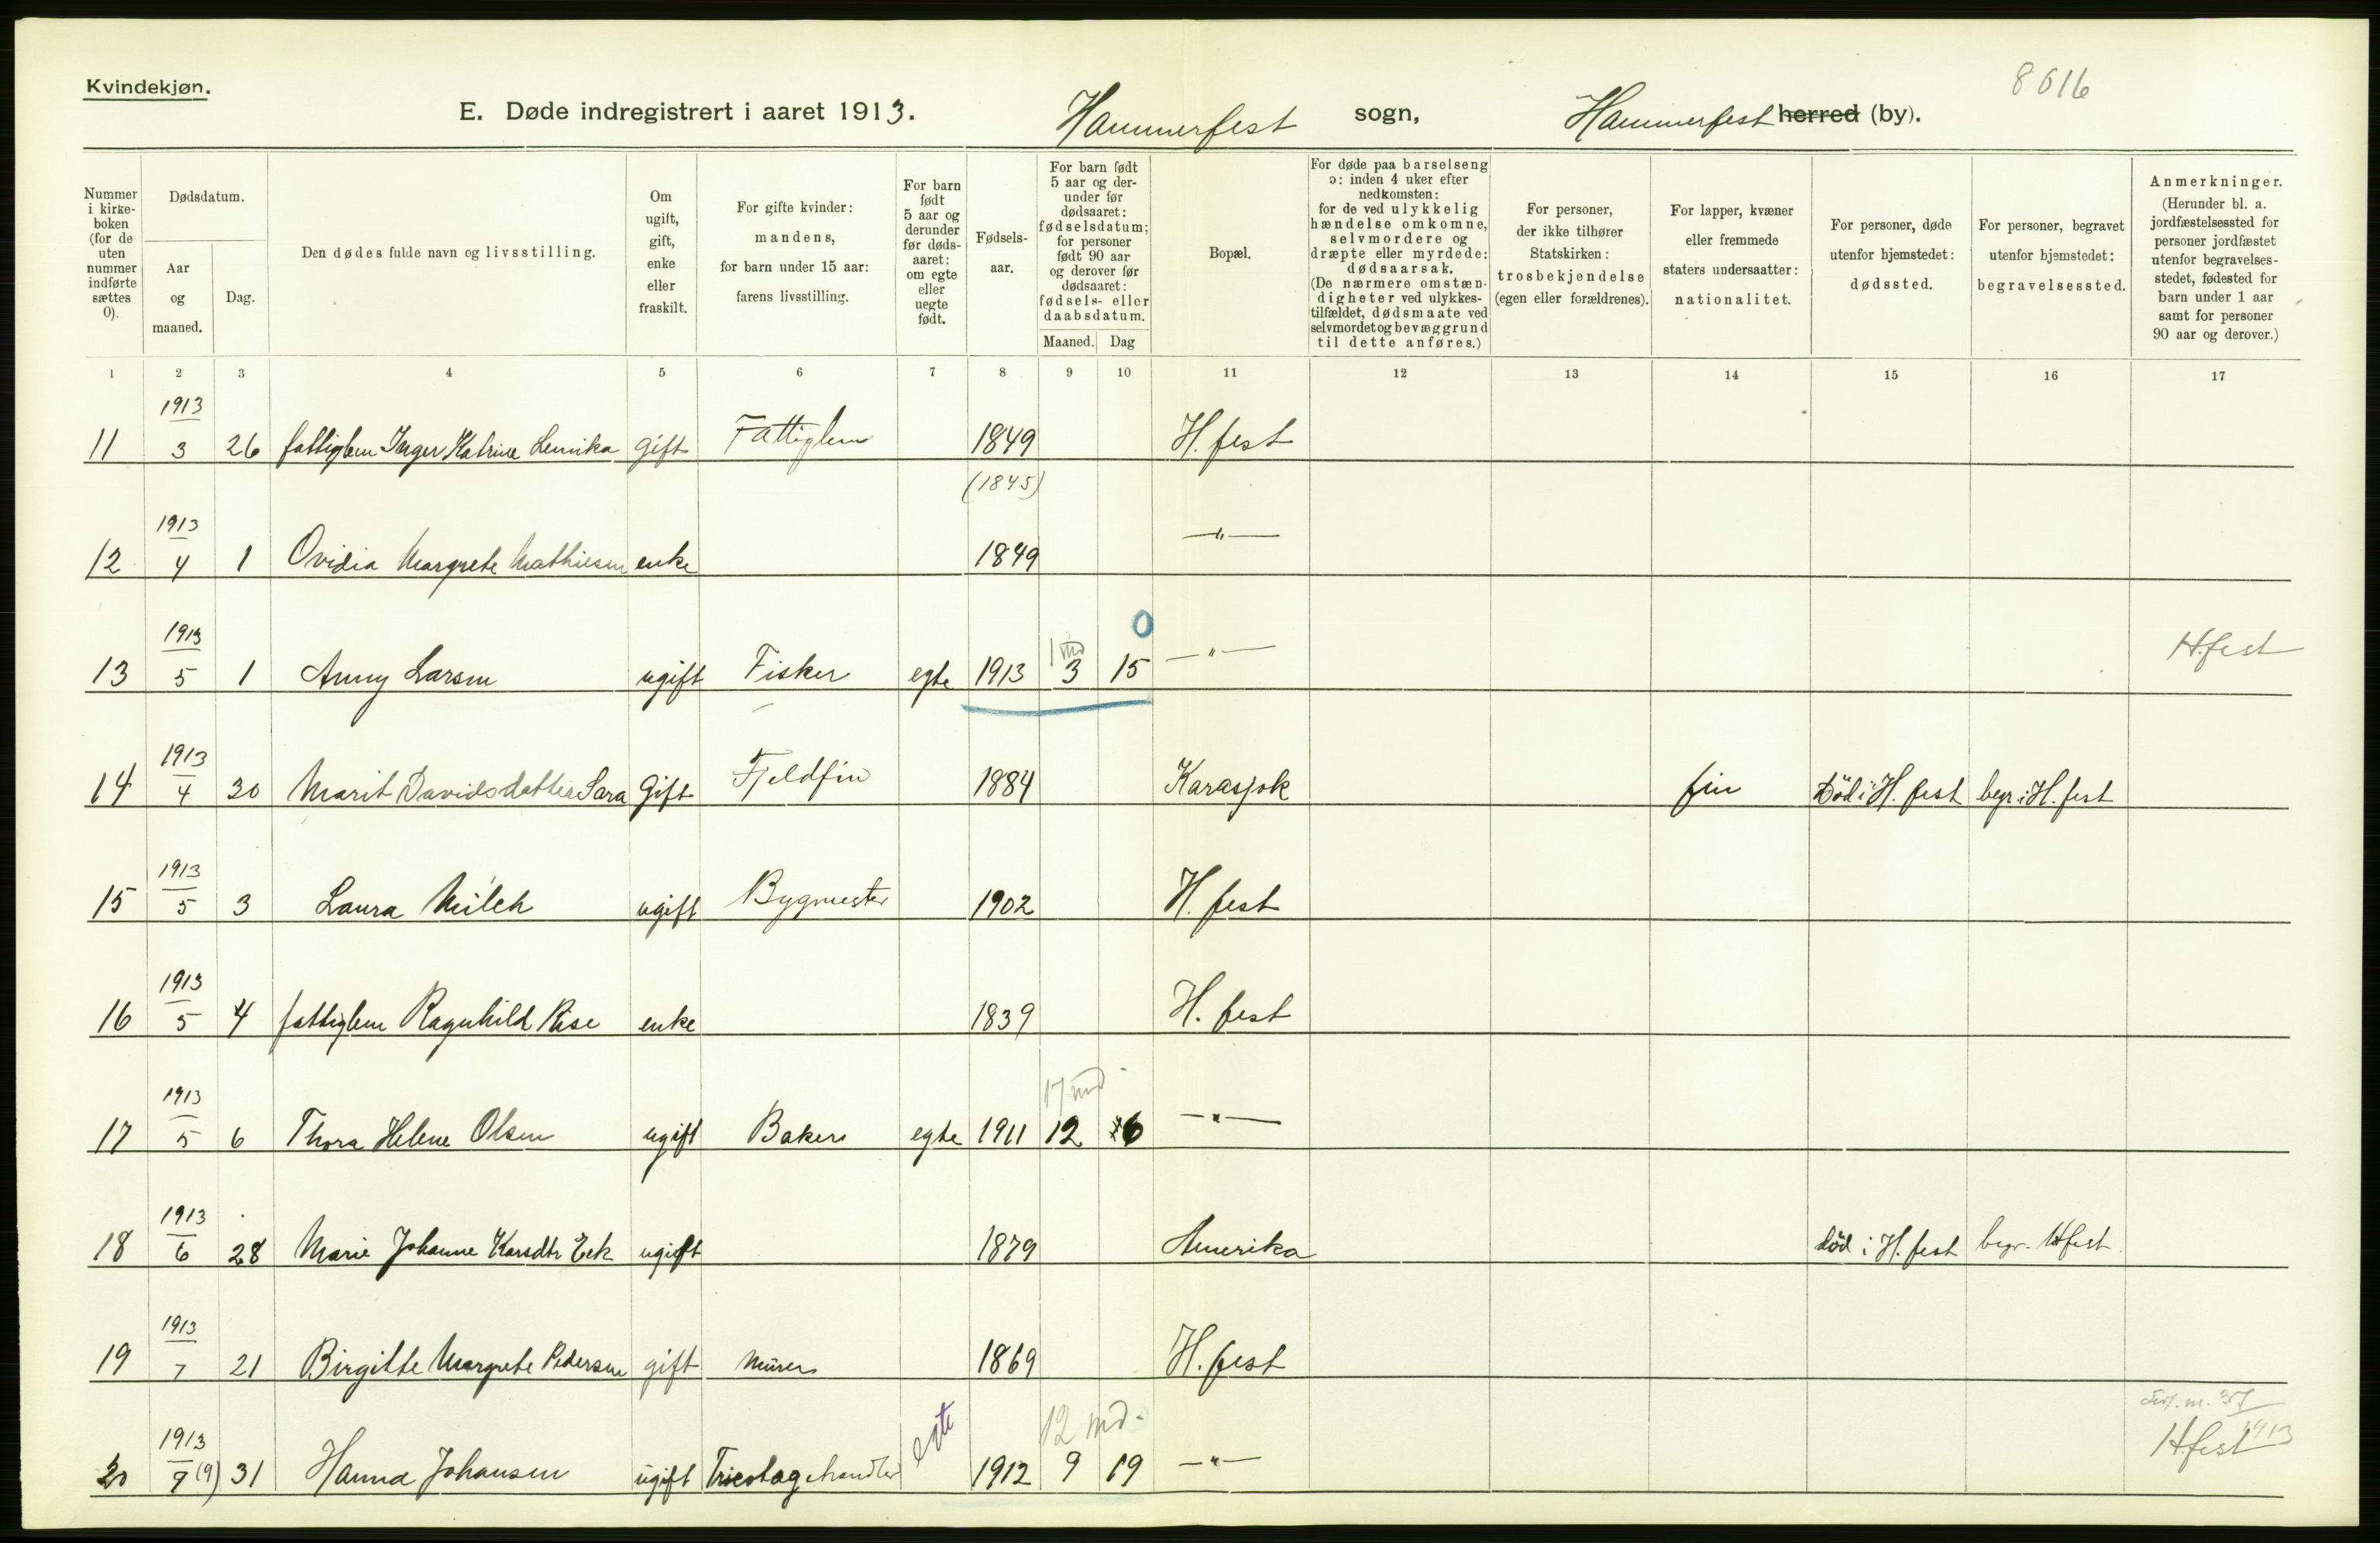 Kvindekjøn.
8616
E. Døde indregistrert i aaret 1913. Hammerfest sogn, Hammerfest herred (by).
Nummer i kirkeboken (for de uten nummer indførte sættes 0).
Dødsdatum.
Aar og maaned.
Dag.
Den dødes fulde navn og livsstilling.
Om ugift, gift, enke eller fraskilt.
For gifte kvinder: mandens, for barn under 15 aar: farens livsstilling.
For barn født 5 aar og derunder før dødsaaret: om egte eller uegte født.
Fødselsaar.
For barn født 5 aar og derunder før dødsaaret: fødselsdatum; for personer født 90 aar og derover før dødsaaret: fødsels- eller daabsdatum.
Maaned. Dag
Bopæl.
For døde paa barselseng ɔ: inden 4 uker efter nedkomsten: for de ved ulykkelig hændelse omkomne, selvmordere og dræpte eller myrdede: dødsaarsak. (De nærmere omstændigheter ved ulykkestilfældet, dødsmaate ved selvmordet og bevæggrund til dette anføres.)
For personer, der ikke tilhører Statskirken: trosbekjendelse (egen eller forældrenes).
For lapper, kvæner eller fremmede staters undersaatter: nationalitet.
For personer, døde utenfor hjemstedet: dødssted.
For personer, begravet utenfor hjemstedet: begravelsessted.
Anmerkninger. (Herunder bl. a. jordfæstelsessted for personer jordfæstet utenfor begravelsesstedet, fødested for barn under 1 aar samt for personer 90 aar og derover.)
1 2 3 4 5 6 7 8 9 10 11 12 13 14 15 16 17
1913
11 3 26 fattiglem Inger Katrine Lemika gift Fattiglem 1849 H.fest
(1845)
1913
12 4 1 Ovidia Margrete Mathiesen enke 1849 —"—
1913 0
13 5 1 Anny Larsen ugift Fisker egte 1913 1 md 3 15 —"— H.fest
1913
14 4 30 Marit Davidsdatter Sara Gift Fjeldfin 1884 Karasjok fin Død i H.fest begr. i H.fest
1913
15 5 3 Laura Milch ugift Bygmester 1902 H.fest
1913
16 5 4 fattiglem Ragnhild Rise enke 1839 H.fest
1913 17 md
17 5 6 Thora Helene Olsen ugift Baker egte 1911 12 6 —"—
1913
18 6 28 Marie Johanne Karsdtr Eek ugift 1879 Amerika død i H.fest begr. H.fest
1913
19 7 21 Birgitte Margrete Pedersen gift murer 1869 H.fest
1913 egte 12 md. 1913
20 9 (9) 31 Hanna Johansen ugift Tricotagehandler 1912 9 19 —"— H.fest